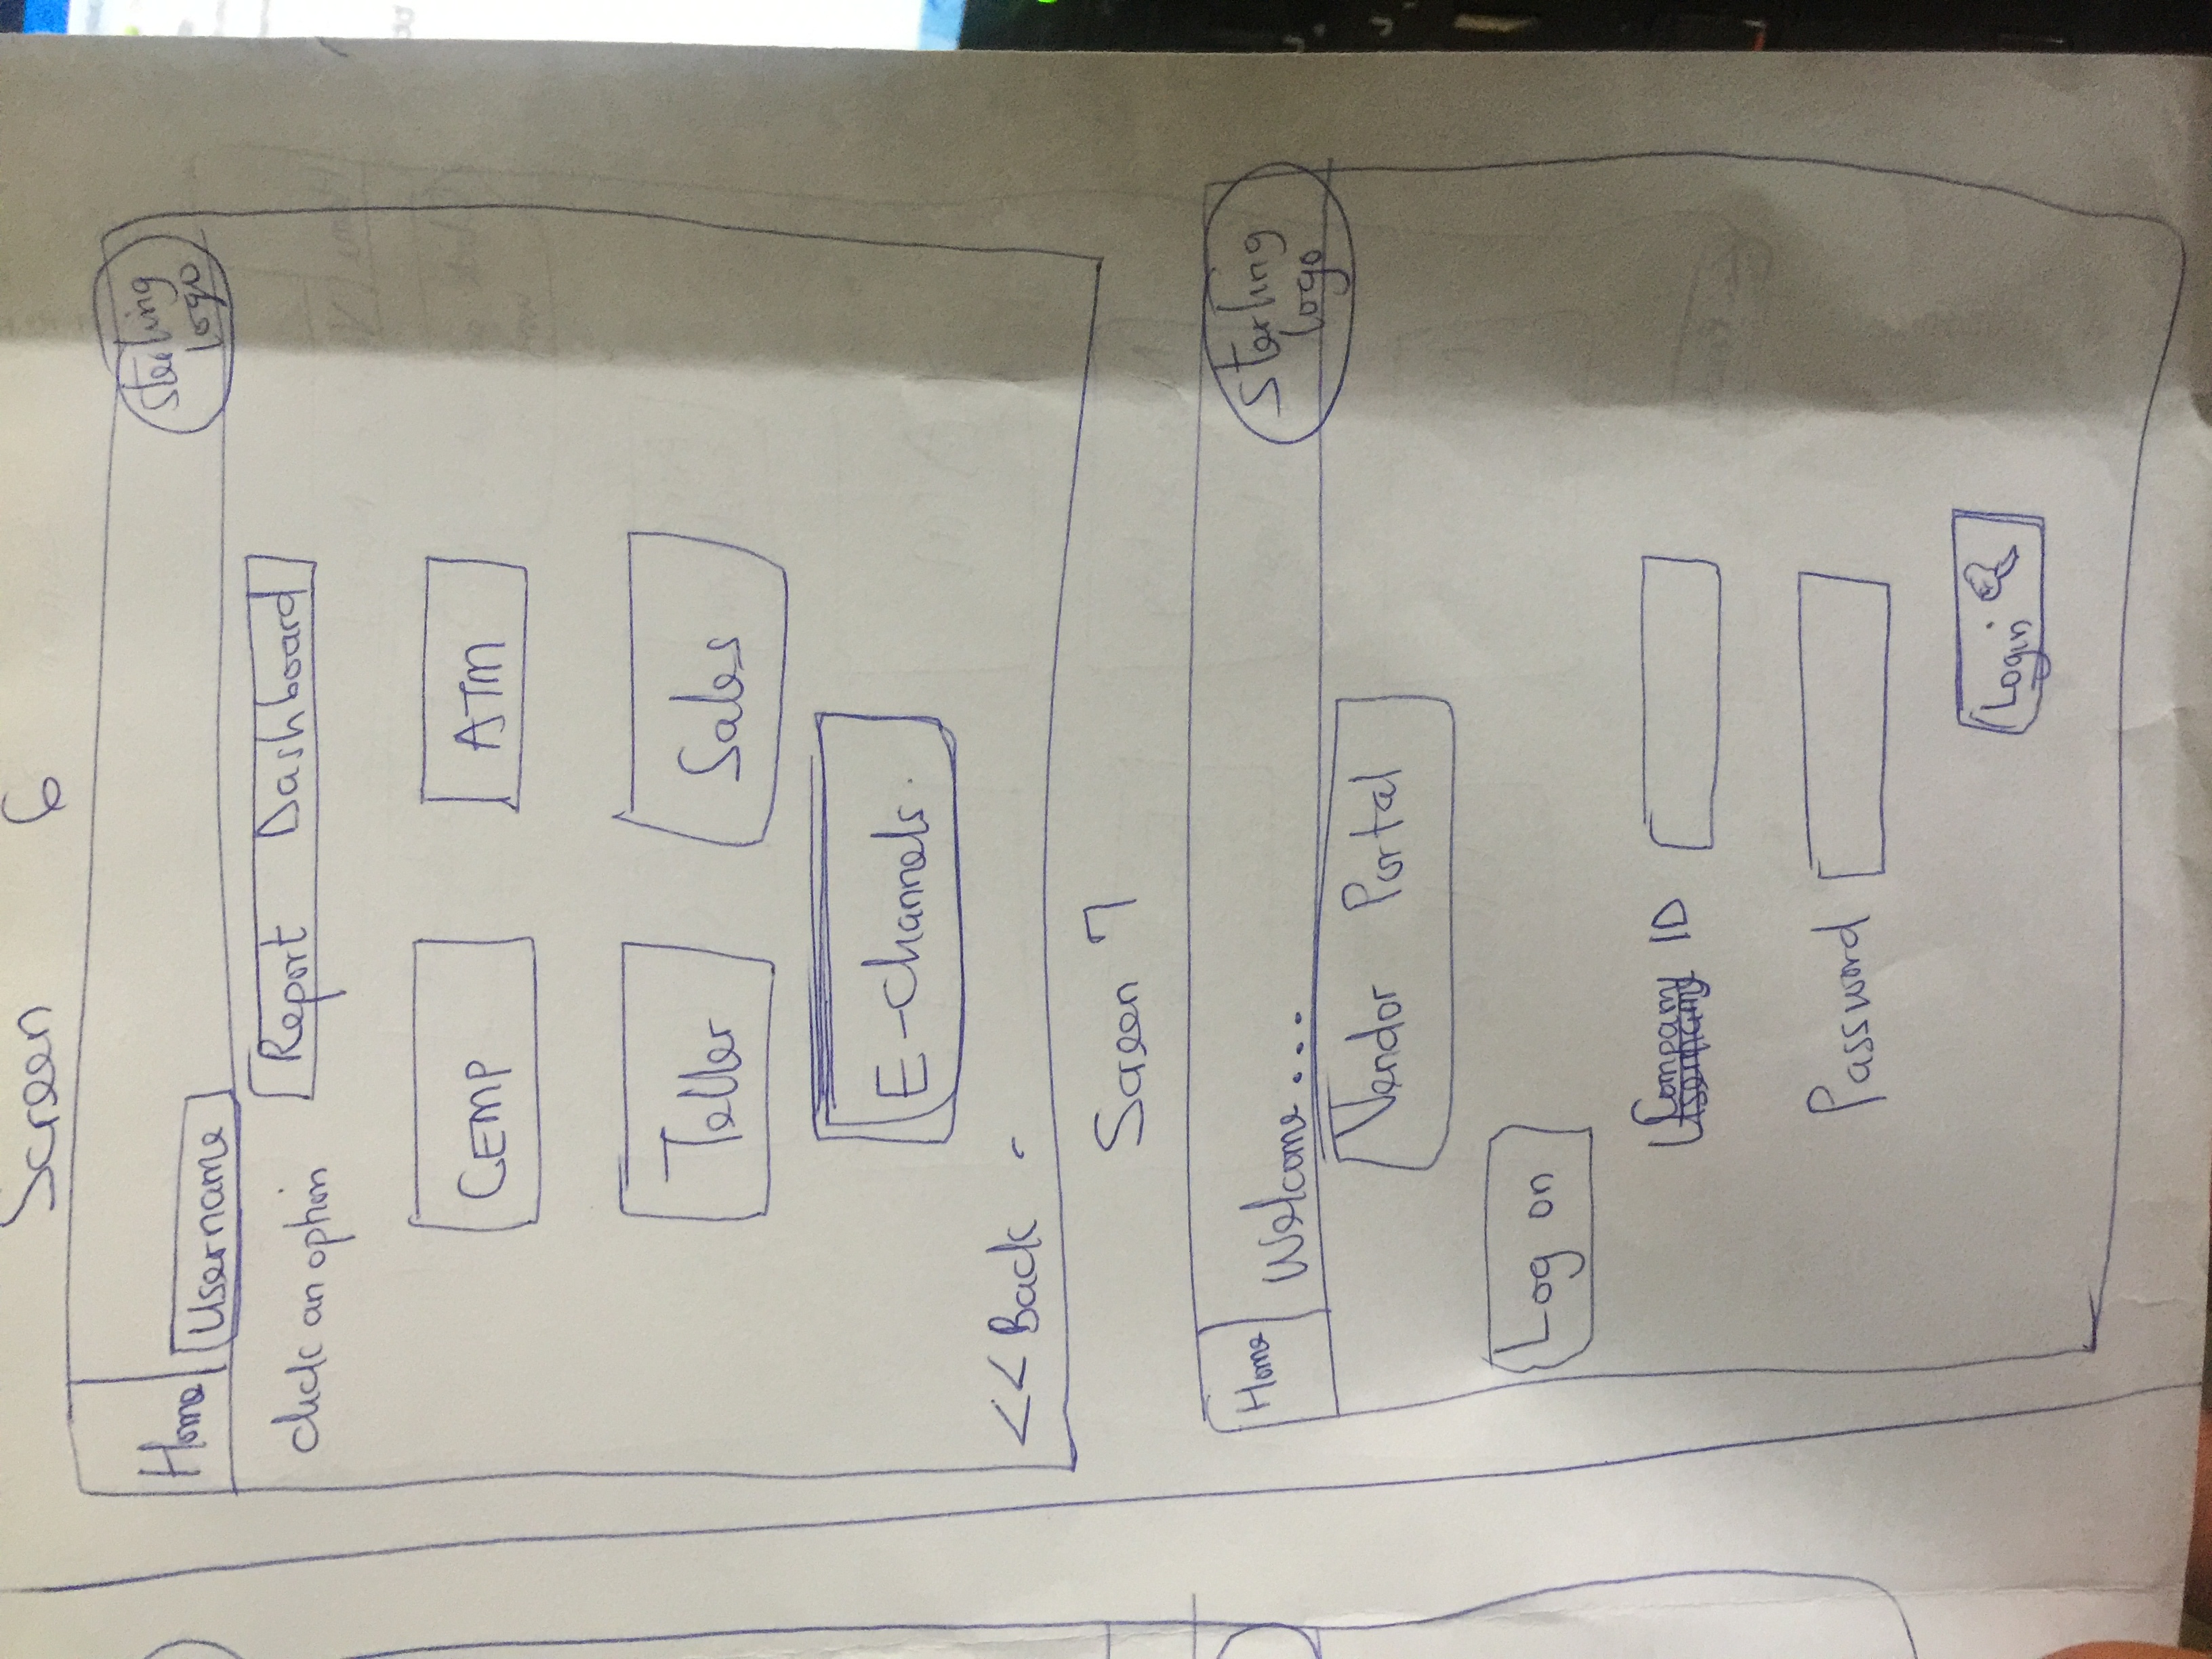 Screen 6
Home
Username
Sterling
logo
click an option
Report Dashboard
CEMP
ATM
Teller
Sales
E-Channels.
<<Back -
Screen 7
Home
Welcome...
Sterling
logo
Vendor Portal
Log on
Company ID
Username
Password
Login